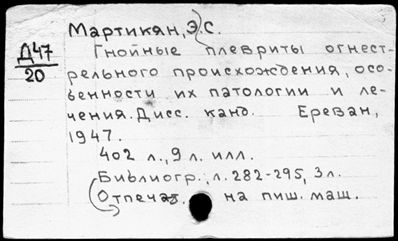 Мартикян, Э.С.
Д47
20
Гнойные плевриты огнест-
рельного происхождения, осо-
бенности их патологии и ле-
чения. Дисс. канд. Ереван,
1947.
402 л., 9 л. илл.
Библиогр.: л. 282-295, 3 л.
(Отпечат. на пиш. маш.